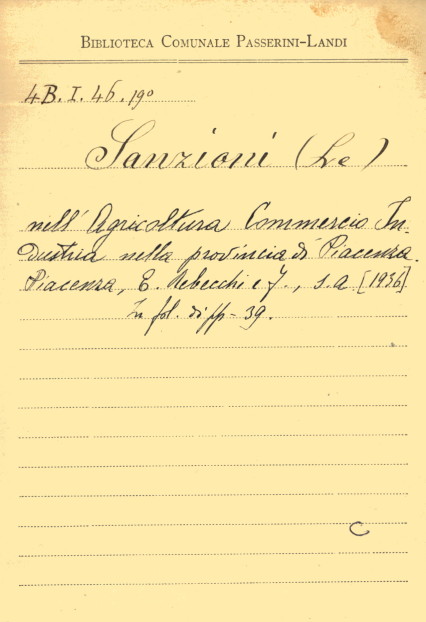 BIBLIOTECA COMUNALE PASSERINI-LANDI
4B. I. 46. 19º
Sanzioni (Le)
nell' Agricoltura Commercio In-
dustria nella provincia di Piacenza.
Piacenza, E. Rebecchi e f., s. a [1936]
In fol. di pp - 39.
C